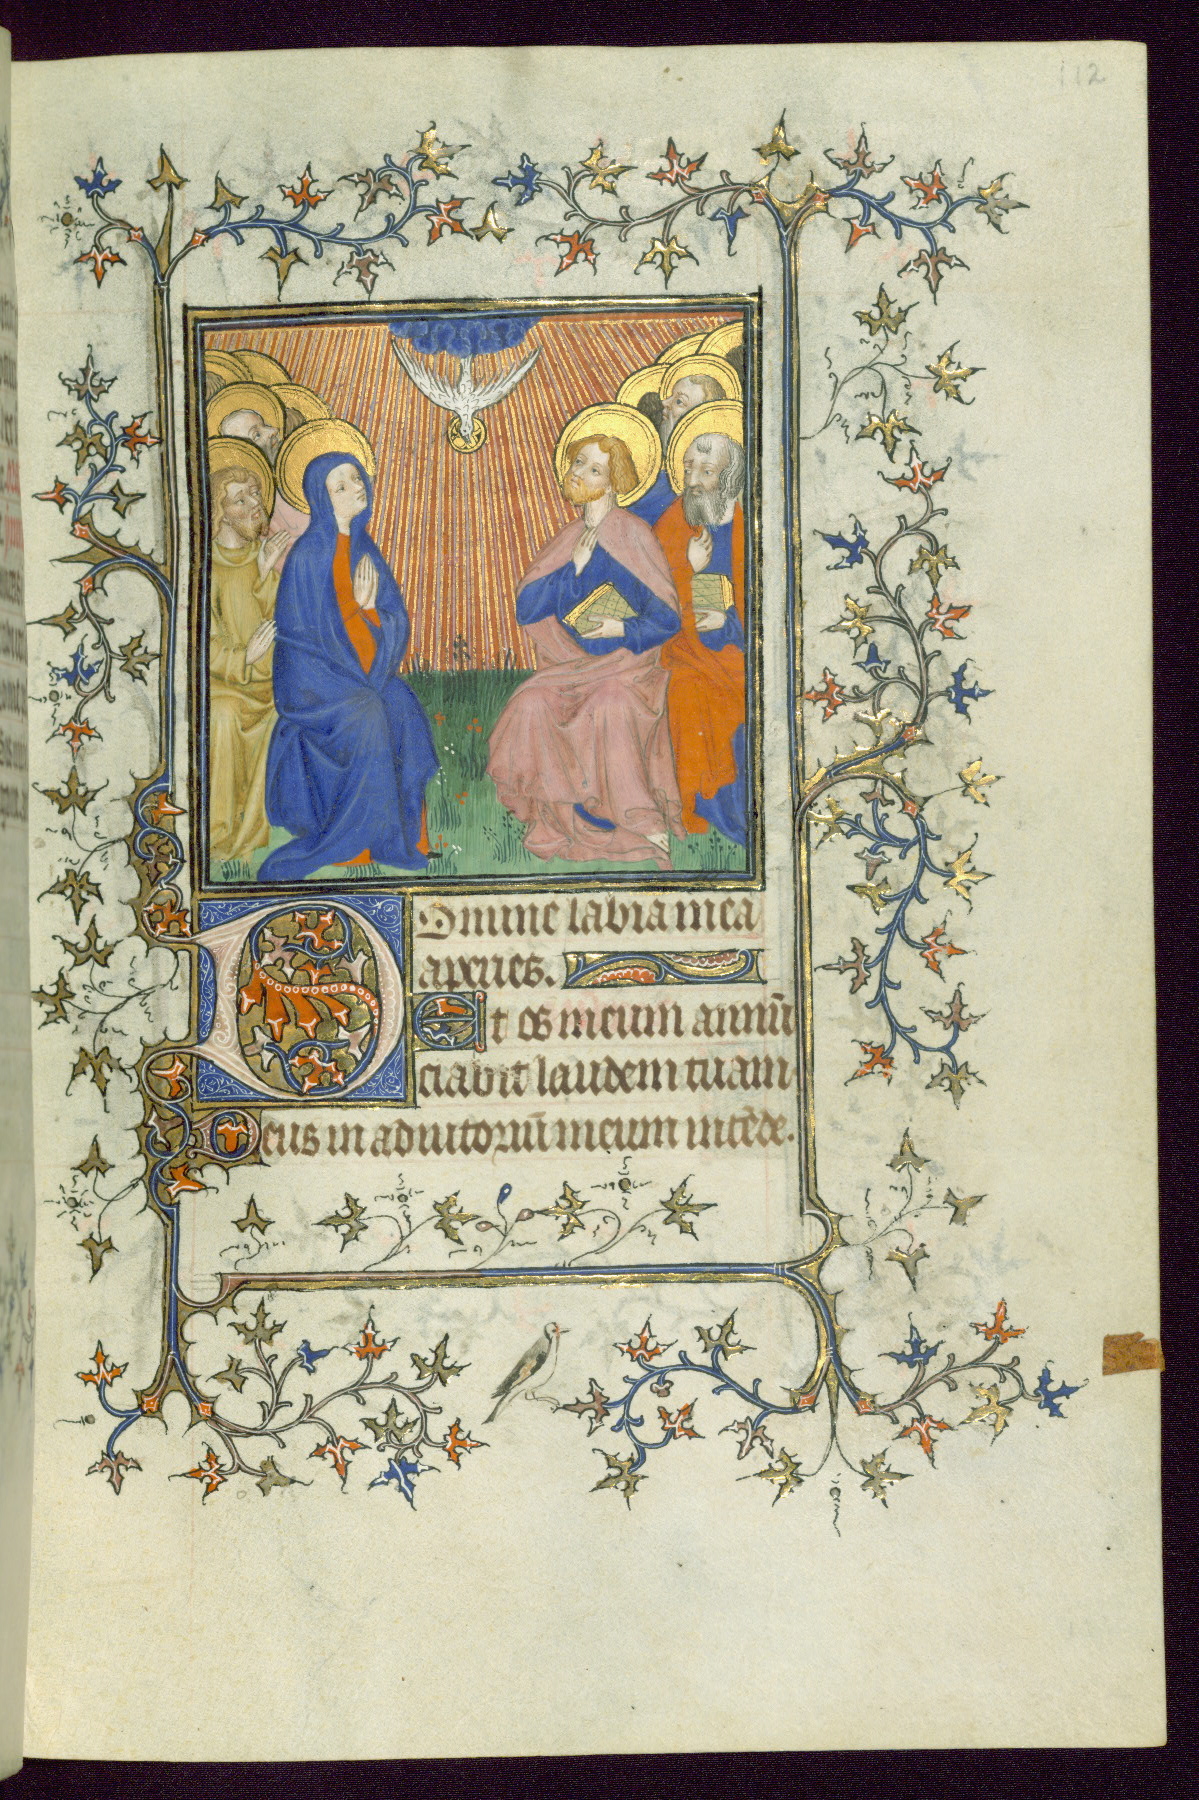 112
Domine labia mea
aperies.
Et os meum annū
ciabit laudem tuam
Deus in adiutoriū meum intēde.